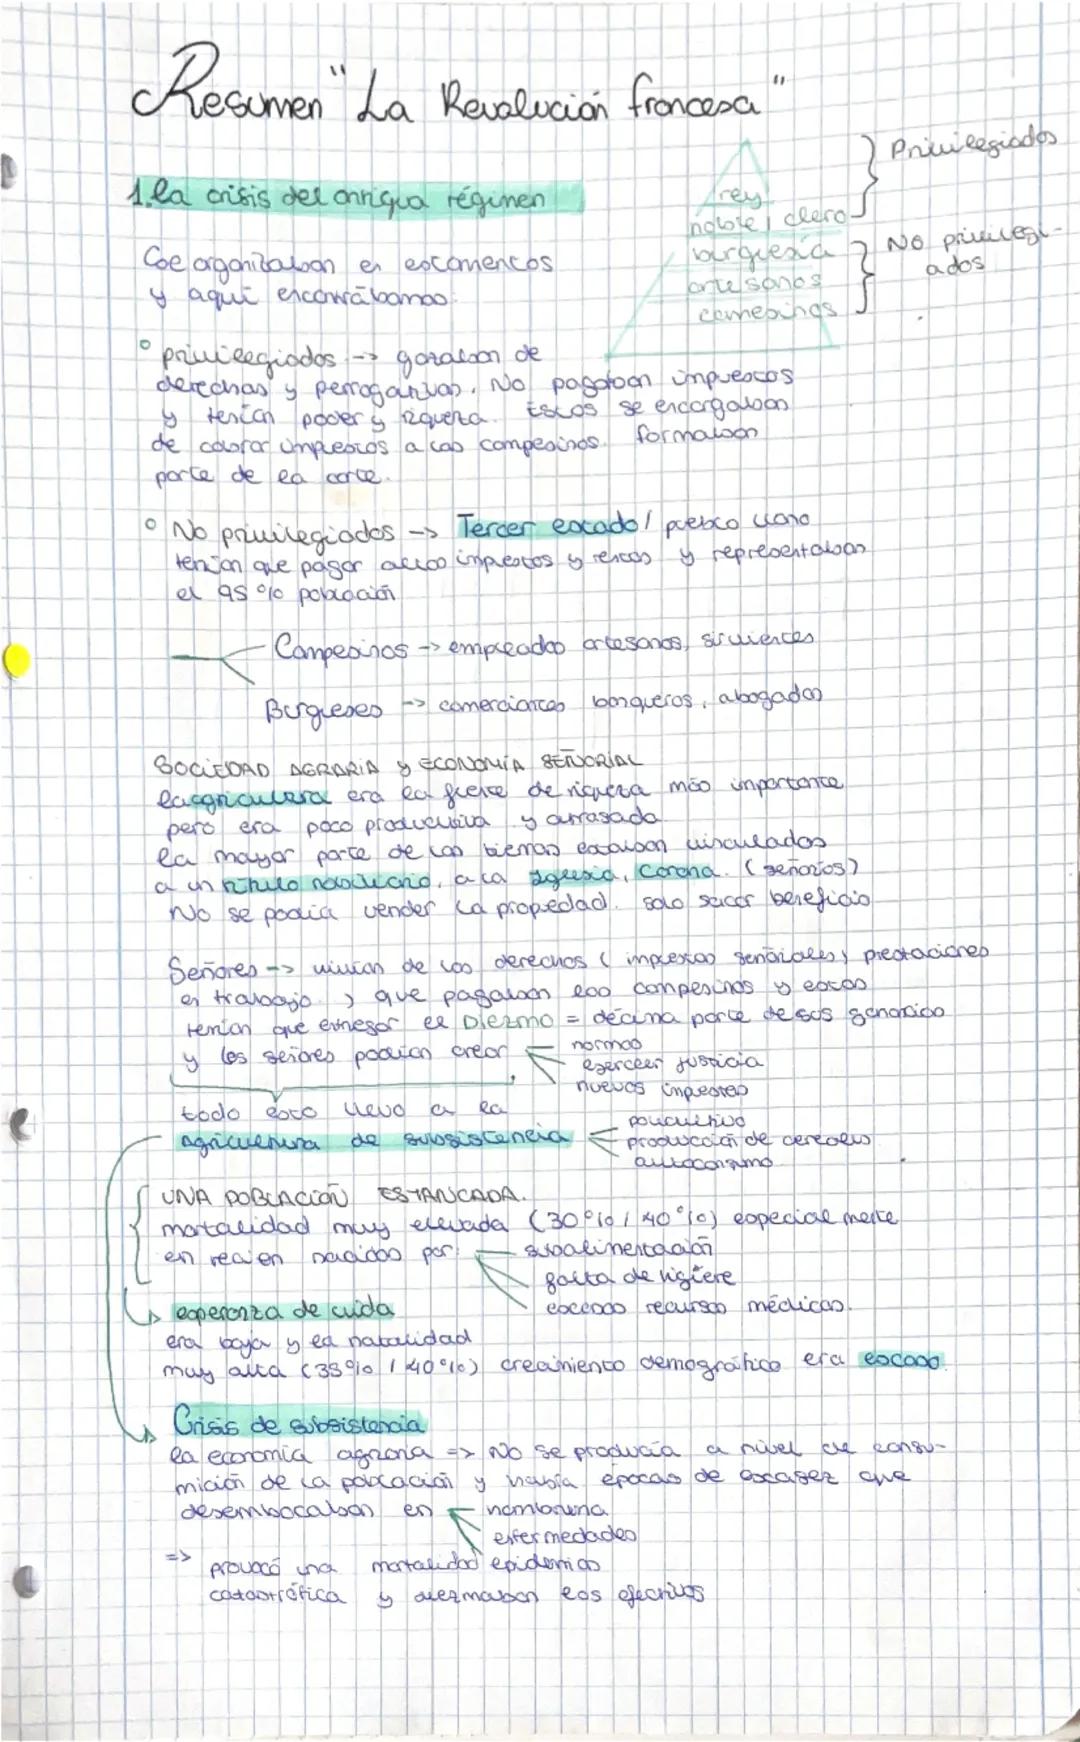 Resumen "La Revolución francesa"
Privilegiados
1. La crisis del antiguo régimen
rey
noble, clero
burguesía
artesanos
campesinos
No privilegi-
ados
Se organizaban en estamentos
y aquí encontrábamos:
° privilegiados --> gozaban de
derechos y perrogativas. No pagaban impuestos
y tenían poder y riqueza. Estos se encargaban
de cobrar impuestos a los campesinos. formaban
parte de la corte.
° No privilegiados --> Tercer estado / pueblo llano
tenían que pagar altos impuestos y rentas y representaban
el 95% población
Campesinos -> empleados artesanos, sirvientes
Burgueses -> comerciantes banqueros, abogados
SOCIEDAD AGRARIA y ECONOMÍA SEÑORIAL
La agricultura era la fuente de riqueza más importante
pero era poco productiva y atrasada
la mayor parte de las tierras estaban vinculados
a un título nobiliario, a la iglesia, Corona. (señoríos)
No se podía vender la propiedad. solo sacar beneficio
Señores --> vivían de los derechos (impuestos señoriales y prestaciones
en trabajo) que pagaban los campesinos y estos
tenían que entregar el Diezmo = décima parte de sus ganancias
y los señores podían crear
normas
ejercer justicia
nuevos impuestos
todo esto llevo a la
agricultura de subsistencia
policultivo
producción de cereales
autoconsumo
UNA POBLACIÓN ESTANCADA.
mortalidad muy elevada (30% / 40%) especialmente
en recien nacidos por:
subalimentación
falta de higiene
escasos recursos médicos.
esperanza de vida
era baja y la natalidad
muy alta (35% / 40%) crecimiento demográfico era escaso.
Crisis de subsistencia
la economía agraria => No se producía a nivel de consu-
mición de la población y había épocas de escasez que
desembocaban en
hambruna
enfermedades
epidemias
=> provocó una mortalidad
catastrófica y diezmaban los efectivos